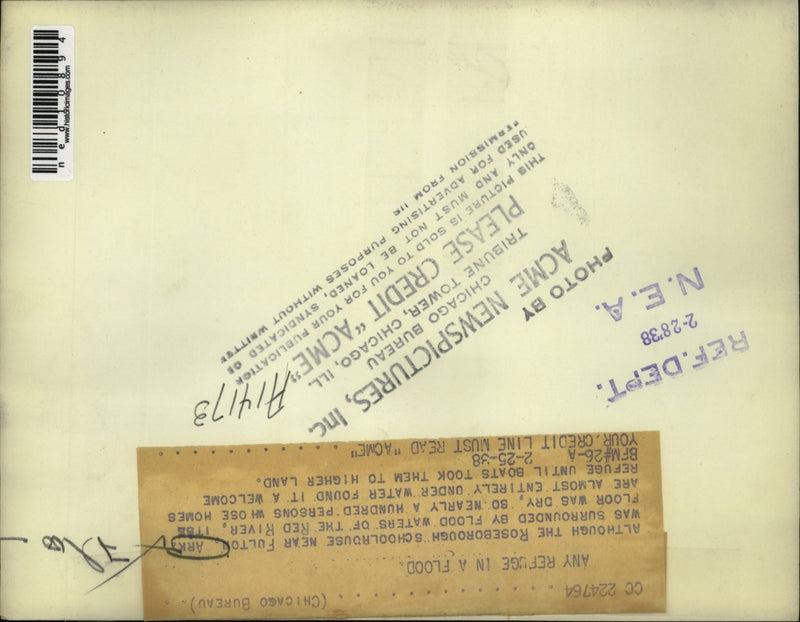 CC 224764 . . . . . . . . . . . . . . . (CHICAGO BUREAU).
ANY REFUGE IN A FLOOD.
ALTHOUGH THE ROSEBOROUGH SCHOOLHOUSE NEAR FULTON ARK.
WAS SURROUNDED BY FLOOD WATERS OF THE RED RIVER, ITSE
FLOOR WAS DRY, SO NEARLY A HUNDRED PERSONS WHOSE HOMES
ARE ALMOST ENTIRELY UNDER WATER FOUND IT A WELCOME
REFUGE UNTIL BOATS TOOK THEM TO HIGHER LAND.
BFM#26-A 2-25-38
YOUR CREDIT LINE MUST READ "ACME" . . . . . . . . . .
A14173
REF. DEPT.
2-28'38
N. E. A.
PHOTO BY
ACME NEWSPICTURES, Inc.
CHICAGO BUREAU
TRIBUNE TOWER, CHICAGO, ILL.
PLEASE CREDIT "ACME"
THIS PICTURE IS SOLD TO YOU FOR YOUR PUBLICATION
ONLY AND MUST NOT BE LOANED, SYNDICATED OR
USED FOR ADVERTISING PURPOSES WITHOUT WRITTE
PERMISSION FROM US
ned10894
www.historicimages.com